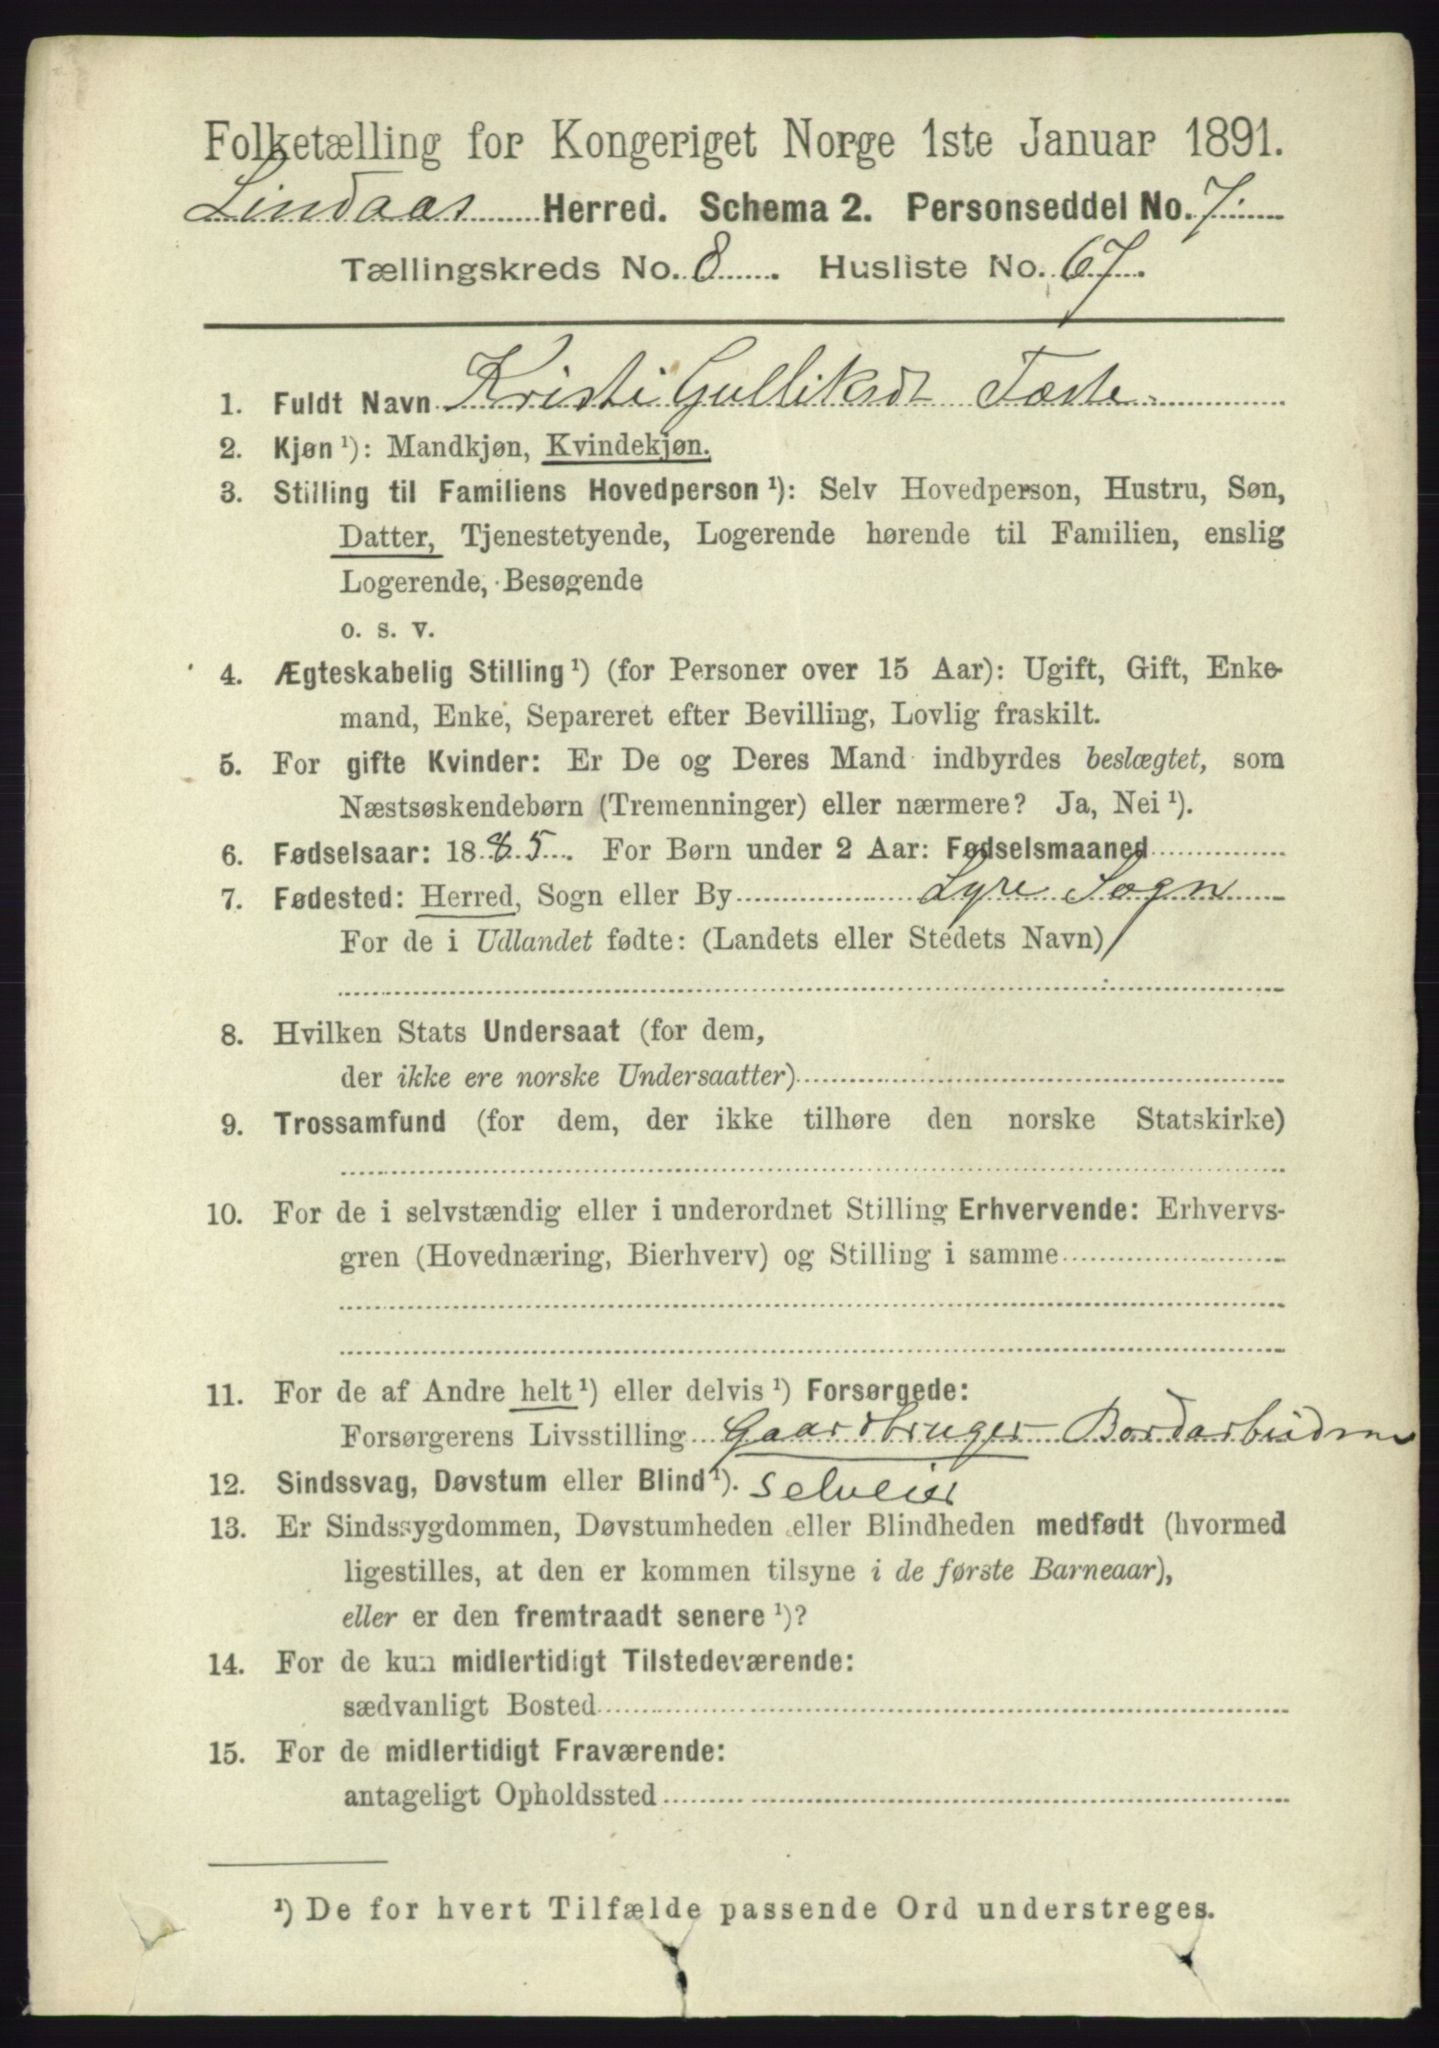 Folketælling for Kongeriget Norge 1ste Januar 1891.
Lindaas Herred. Schema 2. Personseddel No. 7.
Tællingskreds No. 8. Husliste No. 67.
1. Fuldt Navn Kristi Gulliksdt Tæste
2. Kjøn ¹): Mandkjøn, Kvindekjøn.
3. Stilling til Familiens Hovedperson ¹): Selv Hovedperson, Hustru, Søn,
Datter, Tjenestetyende, Logerende hørende til Familien, enslig
Logerende, Besøgende
o. s. v.
4. Ægteskabelig Stilling ¹) (for Personer over 15 Aar): Ugift, Gift, Enke-
mand, Enke, Separeret efter Bevilling, Lovlig fraskilt.
5. For gifte Kvinder: Er De og Deres Mand indbyrdes beslægtet, som
Næstsøskendebørn (Tremenninger) eller nærmere? Ja, Nei ¹).
6. Fødselsaar: 1885. For Børn under 2 Aar: Fødselsmaaned
7. Fødested: Herred, Sogn eller By Lyre Sogn
For de i Udlandet fødte: (Landets eller Stedets Navn)
8. Hvilken Stats Undersaat (for dem,
der ikke ere norske Undersaatter)
9. Trossamfund (for dem, der ikke tilhøre den norske Statskirke)
10. For de i selvstændig eller i underordnet Stilling Erhvervende: Erhvervs-
gren (Hovednæring, Bierhverv) og Stilling i samme
11. For de af Andre helt ¹) eller delvis ¹) Forsørgede:
Forsørgerens Livsstilling Gaardbruger
12. Sindssvag, Døvstum eller Blind ¹). selveier
13. Er Sindssygdommen, Døvstumheden eller Blindheden medfødt (hvormed
ligestilles, at den er kommen tilsyne i de første Barneaar),
eller er den fremtraadt senere ¹)?
14. For de kun midlertidigt Tilstedeværende:
sædvanligt Bosted
15. For de midlertidigt Fraværende:
antageligt Opholdssted
¹) De for hvert Tilfælde passende Ord understreges.